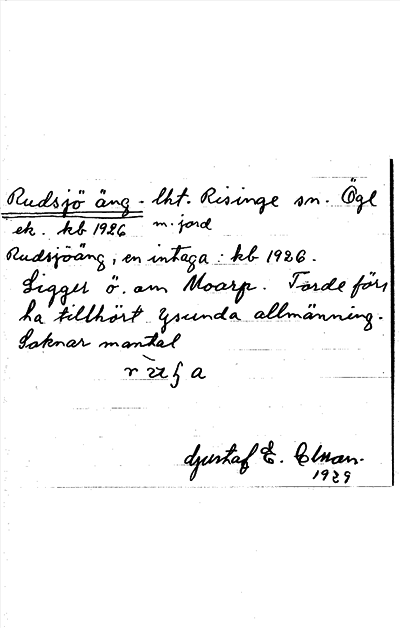 Rudsjö äng - lht. Risinge sn. Ögl
ek. kb 1926 m. jord
Rudsjöäng, en intaga : kb 1926.
Ligger ö. om Moarp. Torde förs
ha tillhört Ysunda allmänning.
Saknar mantal
Gustaf E. Elman.
1929